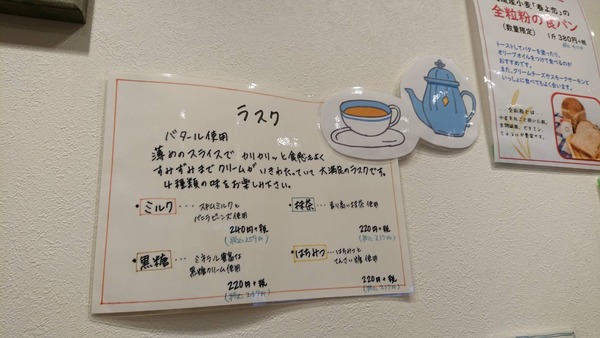 ラスク
バタール使用
薄めのスライスで カリカリッと食感もよく
すみずみまでクリームがいきわたっていて 大満足のラスクです。
4種類の味をお楽しみ下さい。
・ミルク… スキムミルクと
バニラビーンズ使用
240円+税
(税込259円)
・抹茶… 香り高い抹茶使用
220円+税
(税込237円)
・黒糖… ミネラル豊富な
黒糖クリーム使用
220円+税
(税込237円)
・はちみつ… はちみつと
てんさい糖 使用
220円+税
(税込237円)
産小麦「春よ恋」の
全粒粉の食パン
(数量限定) 1斤 380円+税
トーストしてバターを塗ったり、
オリーブオイルをつけて食べるのが
おすすめです。
また、クリームチーズやスモークサーモンと
いっしょに食べてもよく合います。